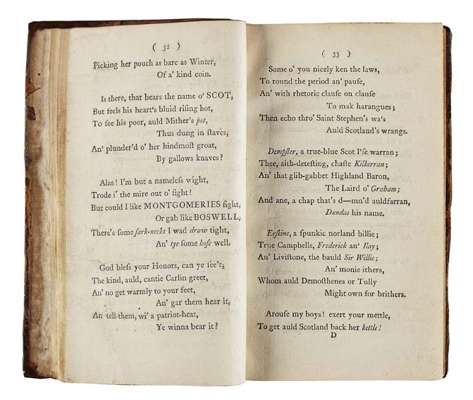 ( 32 )
Picking her pouch as bare as Winter,
Of a' kind coin.
Is there, that bears the name o' SCOT,
But feels his heart's bluid rising hot,
To see his poor, auld Mither's pot,
Thus dung in staves,
An' plunder'd o' her hindmost groat,
By gallows knaves?
Alas! I'm but a nameless wight,
Trode i' the mire out o' sight!
But could I like MONTGOMERIES fight,
Or gab like BOSWELL,
There's some sark-necks I wad draw tight,
An' tye some hose well.
God bless your Honors, can ye see't,
The kind, auld, cantie Carlin greet,
An' no get warmly to your feet,
An' gar them hear it,
An' tell them, wi' a patriot-heat,
Ye winna bear it?
( 33 )
Some o' you nicely ken the laws,
To round the period an' pause,
An' with rhetoric clause on clause
To mak harangues;
Then echo thro' Saint Stephen's wa's
Auld Scotland's wrangs.
Dempster, a true-blue Scot I'se warran;
Thee, aith-detesting, chaste Kilkerran;
An' that glib-gabbet Highland Baron,
The Laird o' Graham;
And ane, a chap that's d—mn'd auldfarran,
Dundas his name.
Erskine, a spunkie norland billie;
True Campbells, Frederick an' Ilay;
An' Livistone, the bauld Sir Willie;
An' monie ithers,
Whom auld Demosthenes or Tully
Might own for brithers.
Arouse my boys! exert your mettle,
To get auld Scotland back her kettle!
D